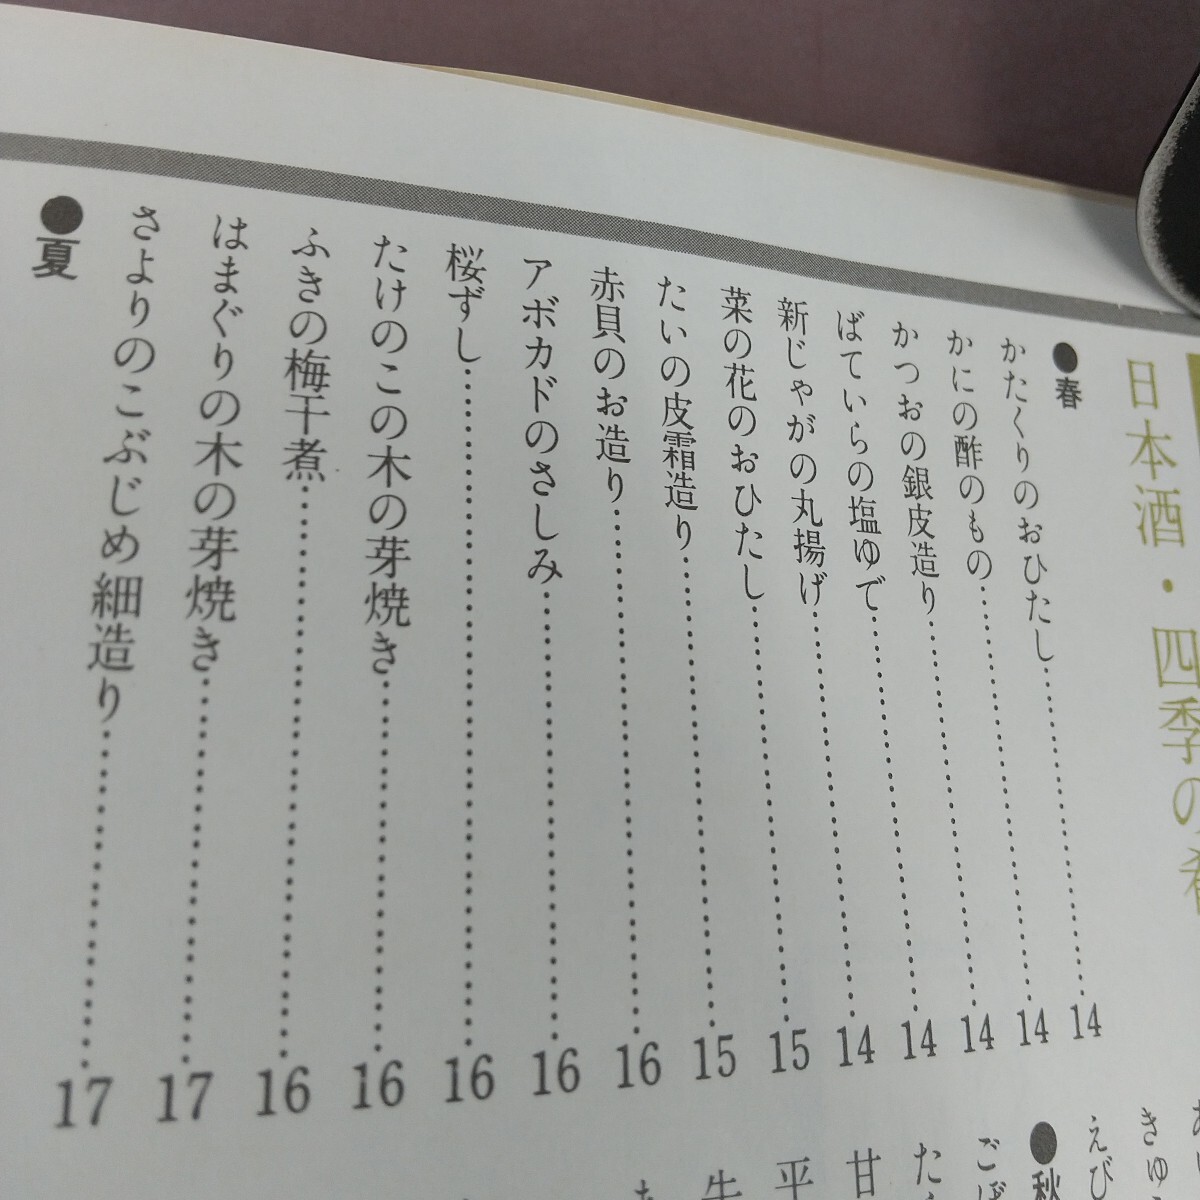 日本酒・四季の肴
●春
かたくりのおひたし…………14
かにの酢のもの…………14
かつおの銀皮造り…………14
ばていらの塩ゆで…………14
新じゃがの丸揚げ…………15
菜の花のおひたし…………15
たいの皮霜造り…………15
赤貝のお造り…………16
アボカドのさしみ…………16
桜ずし…………16
たけのこの木の芽焼き…………16
ふきの梅干煮…………16
はまぐりの木の芽焼き…………17
さよりのこぶじめ細造り…………17
●夏
きゅ
えび
●秋
ごぼ
た
甘
平
牛